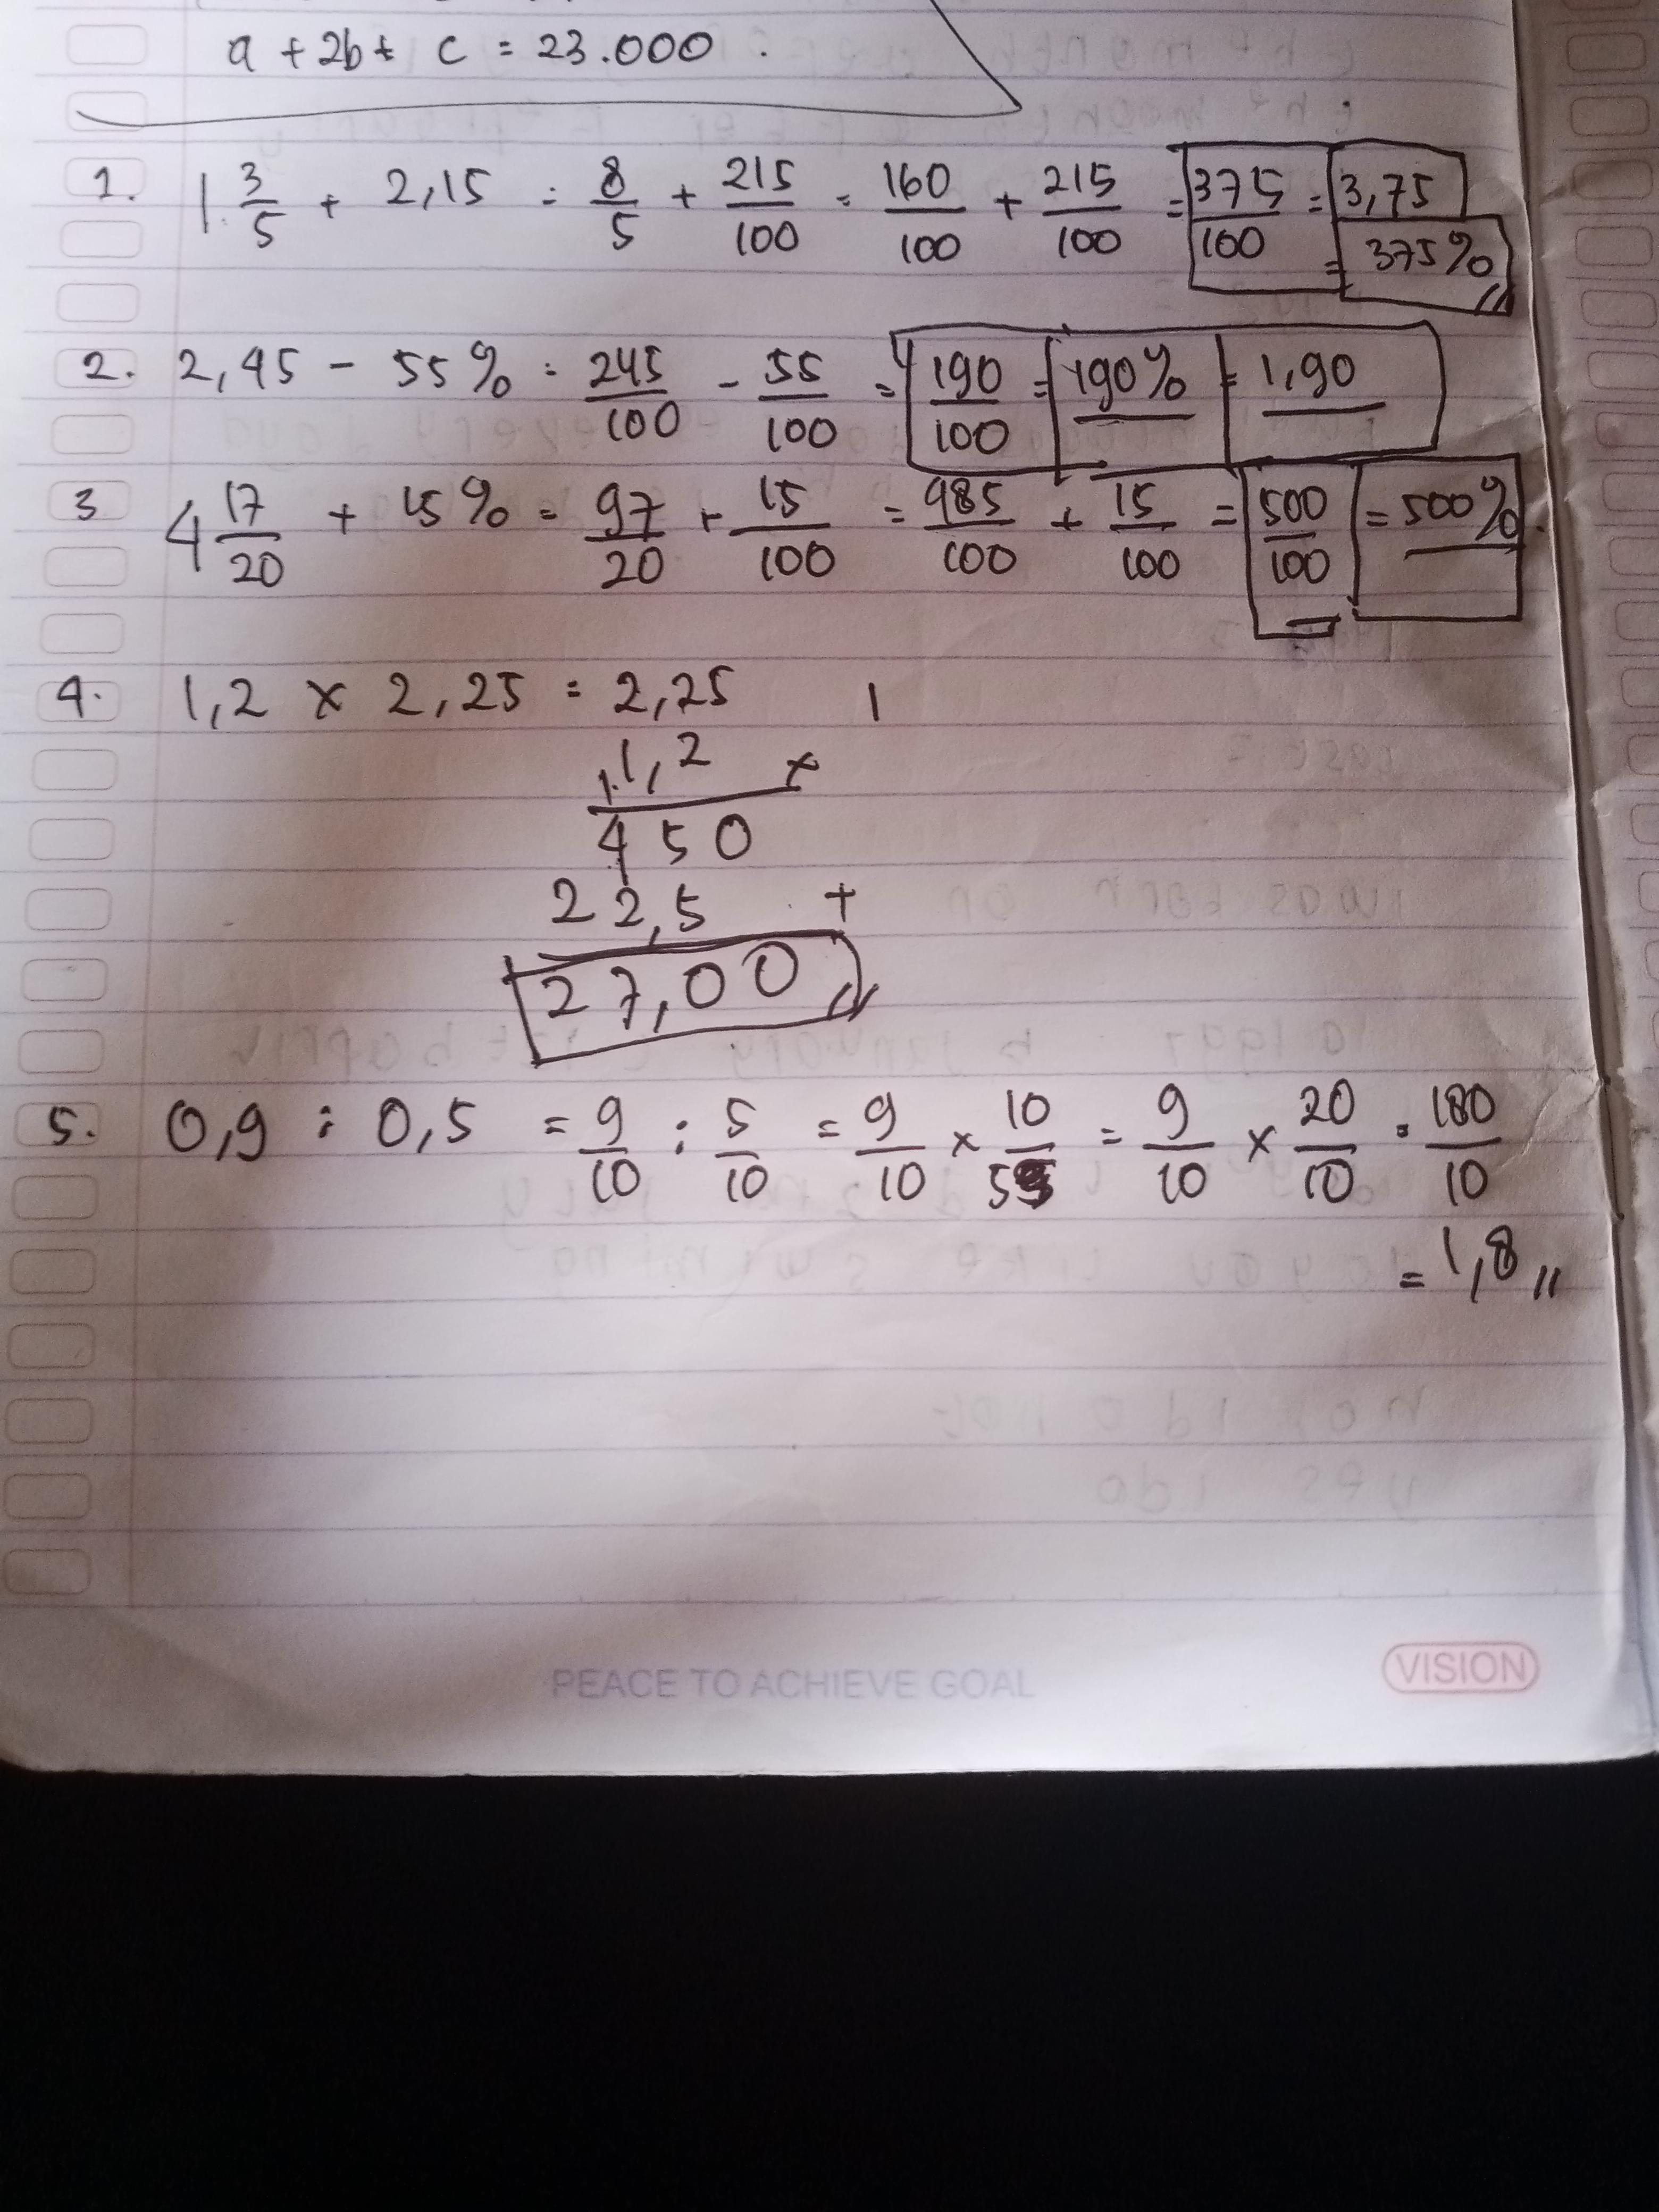 a + 2b + c = 23.000 .
1. 1 3/5 + 2,15 = 8/5 + 215/100 = 160/100 + 215/100 = 375/100 = 3,75
= 375%
2. 2,45 - 55% = 245/100 - 55/100 = 190/100 = 190% = 1,90
3 4 17/20 + 15% = 97/20 + 15/100 = 485/100 + 15/100 = 500/100 = 500%
4. 1,2 × 2,25 = 2,25
1,2 ×
450
22,5 +
27,00
5. 0,9 : 0,5 = 9/10 : 5/10 = 9/10 × 10/5 = 9/10 × 20/10 = 180/10
= 1,8
PEACE TO ACHIEVE GOAL
VISION